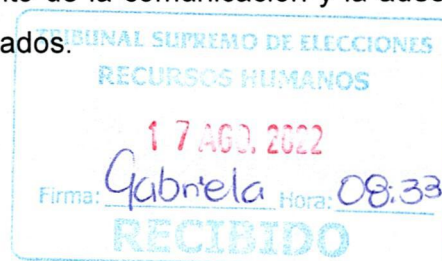 de la comunicación y la
ados.
TRIBUNAL SUPREMO DE ELECCIONES
RECURSOS HUMANOS
17 AGO. 2022
Firma: Gabriela Hora: 08:33
RECIBIDO